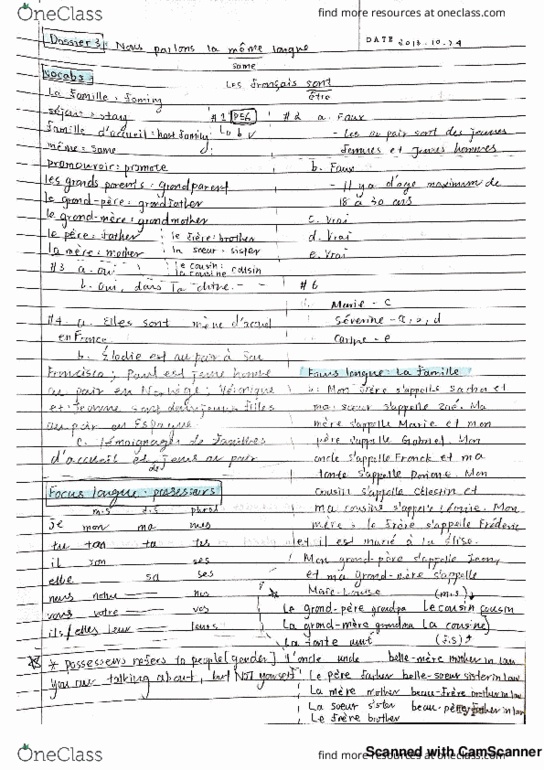 OneClass
find more resources at oneclass.com
Dossier 3: Nous parlons la même langue
same
DATE 2013.10.24
Vocabs:
Les français sont
être
La famille: family
séjour: stay
famille d'accueil: host family
même: same
promouvoir: promote
les grands parents: grandparent
le grand-père: grandfather
le grand-mère: grandmother
le père: father
le frère: brother
la mère: mother
la sœur: sister
le cousin:
la cousine cousin
#1
#2 a. Faux
- Les au pair sont des jeunes
femmes et jeunes hommes
b. Faux
- Il y a d'age maximum de
18 à 30 ans
c. Vrai
d. Vrai
e. Vrai
#3 a. oui
b. Oui, dans
#6
Marie - c
Séverine - a, b, d
Carine - e
#4. a. Elles sont mère d'accueil
en France
b. Élodie est au pair à San
Francisco; Paul est jeune homme
au pair en Norvège; Véronique
et Jeanne sont
au pair en Espagne.
c. Témoignages de familles
d'accueil et jeunes au pair
des
Focus langue: La famille
Mon frère s'appelle Sacha et
ma sœur s'appelle Zoé. Ma
mère s'appelle Marie et mon
père s'appelle Gabriel. Mon
oncle s'appelle Franck et ma
tante s'appelle Doriane. Mon
cousin s'appelle Célestin et
ma cousine s'appelle Léonie. Mon
mère: le frère s'appelle Frédéric
et il est marié à la Élise.
Mon grand-père s'appelle Jean,
et ma grand-mère s'appelle
Marie-Louise
Focus langue: possesseurs
m.s f.s plural
je mon ma mes
tu ton ta tes
il son ses
elle sa ses
nous notre nos
vous votre vos
ils/elles leur leurs
(m.s)
Le grand-père grandpa Le cousin cousin
La grand-mère grandma La cousine
La tante aunt (f.s)
L'oncle uncle belle-mère mother in law
Le père father belle-soeur sister in law
La mère mother beau-frère brother in law
La soeur sister beau-père father in law
Le frère brother
* possesseurs refers to people [gender]
you are talking about, but NOT yourself
OneClass
find more resources at oneclass.com
Scanned with CamScanner